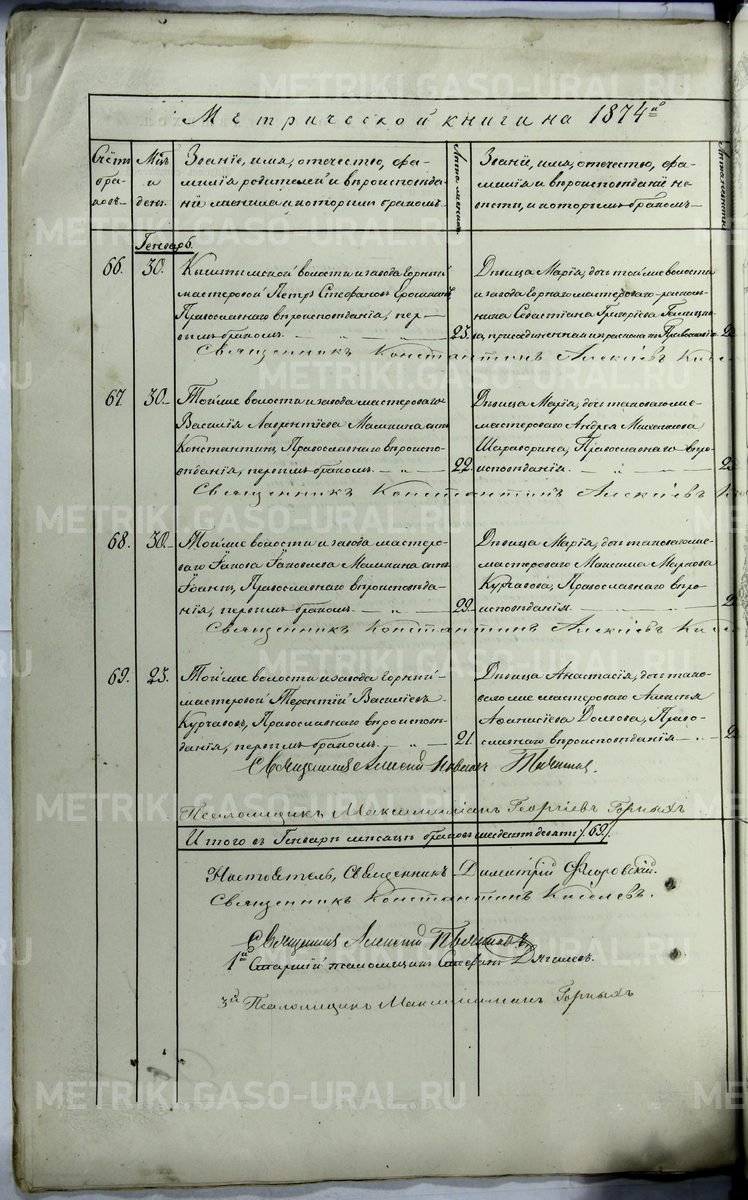 Метрической книги на 1874й
Счётъ браковъ.
Мѣс. и день.
Званіе, имя, отечество, фамилія родителей и вѣроисповѣданіе жениха и которымъ бракомъ.
Лѣта жениха.
Званіе, имя, отечество, фамилія и вѣроисповѣданіе невѣсты, и которымъ бракомъ
Лѣта невѣсты
Генварь.
66. 30. Кыштымской волости и завода горный
мастеровой Петръ Стефановъ
Православнаго вѣроисповѣданія, пер-
вымъ бракомъ. 23.
Дѣвица Марія, дочь той же волости
и завода горнаго мастероваго раскольника Севастіана Григоріева
присоединенная изъ раскола къ Православію.
Священникъ Константинъ Алексіевъ
67. 30. Той же волости и завода мастероваго
Василія Лаврентіева Мамкина сынъ
Константинъ, Православнаго вѣроиспо-
вѣданія, первымъ бракомъ. 22.
Дѣвица Марія, дочь таковаго же
мастероваго Андрея Михайлова
Православнаго вѣро-
исповѣданія.
Священникъ Константинъ Алексіевъ
68. 30. Той же волости и завода мастеро-
ваго Іакова Іаковлева Мамкина сынъ
Іоаннъ, Православнаго вѣроисповѣда-
нія, первымъ бракомъ. 29.
Дѣвица Марія, дочь таковаго же
мастероваго Максима Маркова
Курчавова, Православнаго вѣро-
исповѣданія.
Священникъ Константинъ Алексіевъ
69. 23. Той же волости и завода горный
мастеровой Терентій Василіевъ
Курчавовъ, Православнаго вѣроисповѣ-
данія, первымъ бракомъ. 21.
Дѣвица Анастасія, дочь тако-
ваго же мастероваго Алексія
Аѳанасіева Долгова, Право-
славнаго вѣроисповѣданія
Священникъ Алексій
Псаломщикъ Максимиліанъ Георгіевъ Горныхъ
Итого въ Генварѣ мѣсяцѣ браковъ шестьдесятъ девять /69/.
Настоятель, Священникъ Димитрій Флоровскій.
Священникъ Константинъ Киселевъ.
Священникъ Алексій
1й Старшій псаломщикъ Стефанъ Дягилевъ.
3й Псаломщикъ Максимиліанъ Горныхъ
METRIKI.GASO-URAL.RU